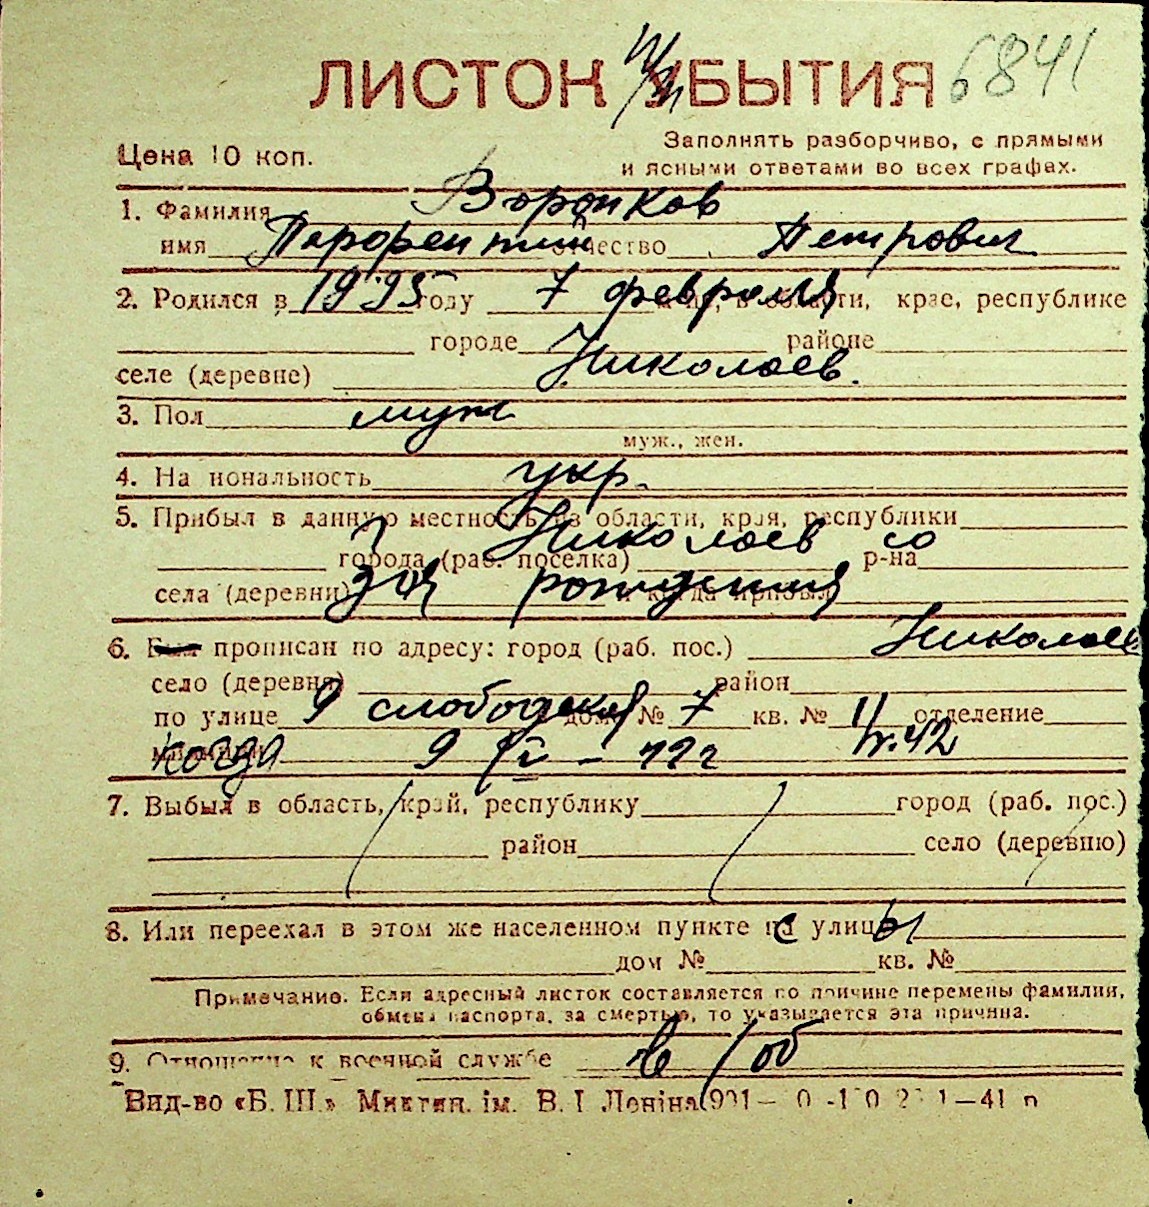 ЛИСТОК УБЫТИЯ 6841
Заполнять разборчиво, с прямыми
Цена 10 коп. и ясными ответами во всех графах.
1. Фамилия Воронков
имя отчество Петрович
2. Родился в году 7 февраля области, крае, республике
городе районе
селе (деревне) Николаев.
3. Пол муж
муж., жен.
4. Национальность укр.
5. Прибыл в данную местность из области, края, республики
Николаев со
города (раб. поселка) р-на
села (деревни) дня рождения и когда прибыл
6. Был прописан по адресу: город (раб. пос.) Николаев
село (деревня) район
по улице 9 слободская дом № 7 кв. № 11 отделение
когда 9
7. Выбыл в область, край, республику город (раб. пос.)
район село (деревню)
8. Или переехал в этом же населенном пункте с улицы
дом № кв. №
Примечание. Если адресный листок составляется по причине перемены фамилии,
обмена паспорта, за смертью, то указывается эта причина.
9. Отношение к военной службе в/об
Вид-во «Б. Ш.» Миктип. ім. В. І Леніна